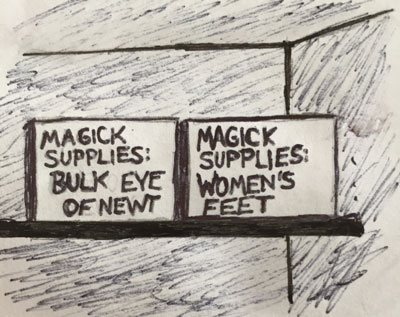 MAGICK
SUPPLIES:
BULK EYE
OF NEWT
MAGICK
SUPPLIES:
WOMEN'S
FEET